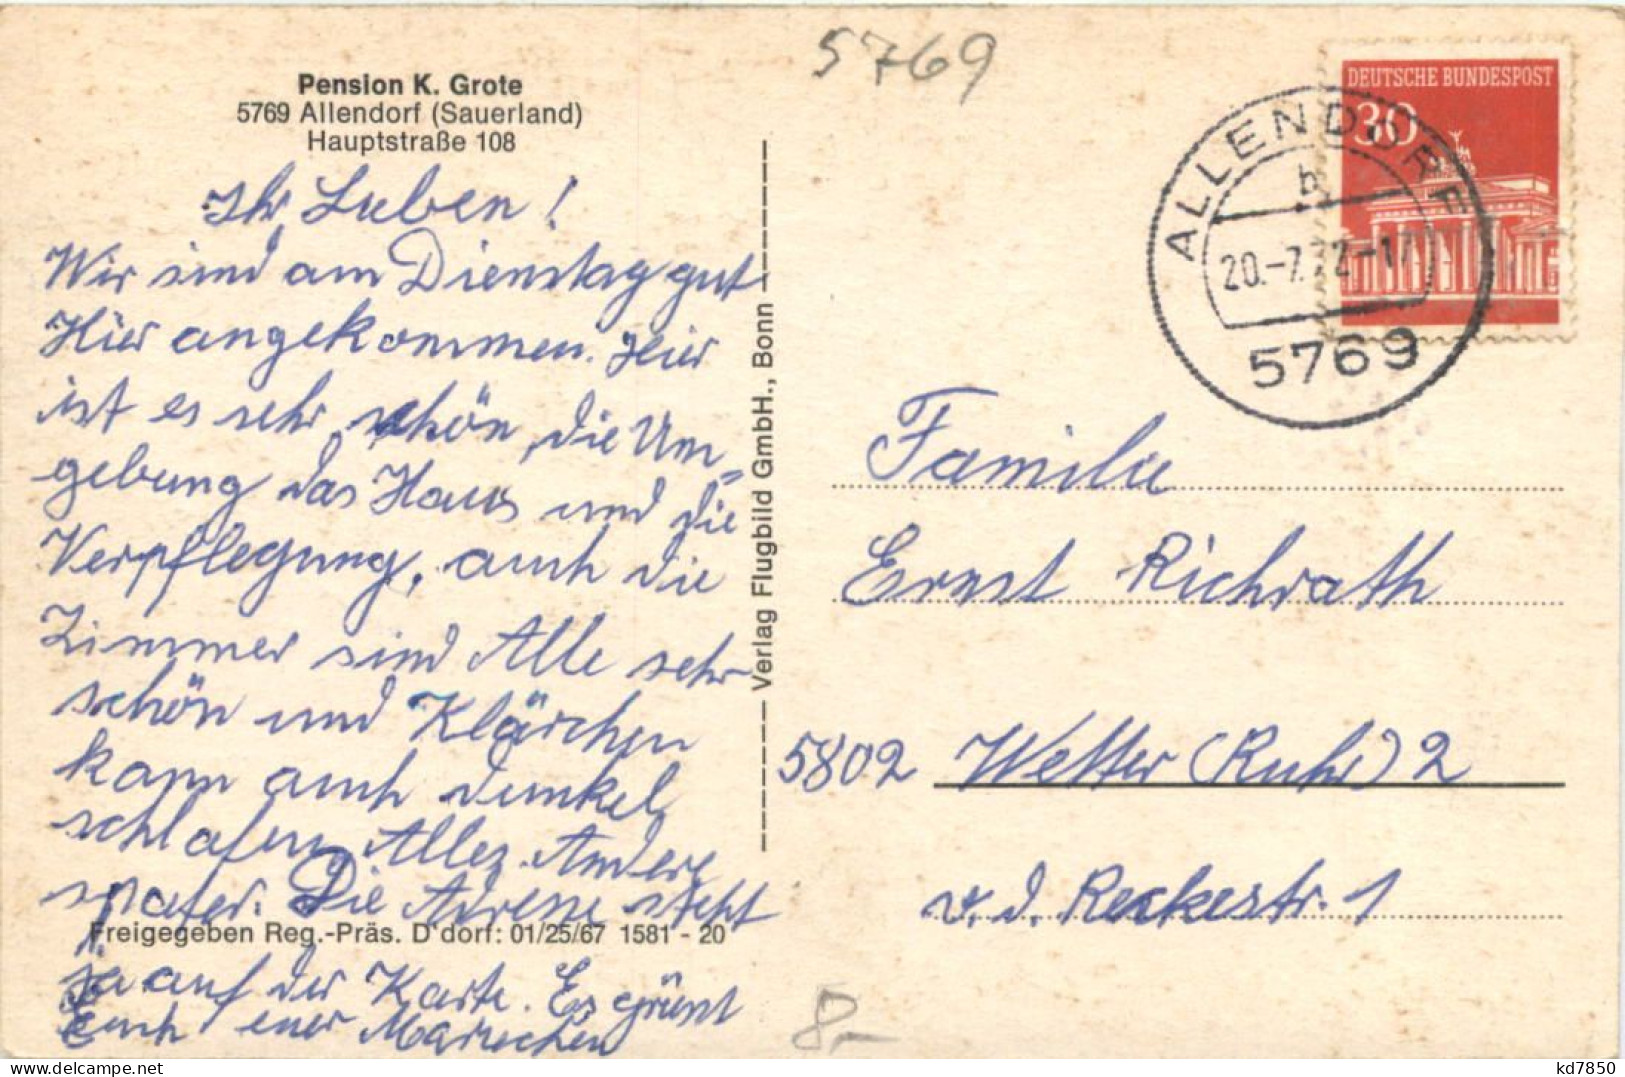 Pension K. Grote
5769 Allendorf (Sauerland)
Hauptstraße 108
Ihr Lieben!
Wir sind am Dienstag gut
Hier angekommen. Hier
ist es sehr schön, die Um=
gebung das Haus und die
Verpflegung, auch die
Zimmer sind Alle sehr
schön und Klärchen
kann auch dunkel
schlafen, Alles Andere
später. Die Adresse steht
Freigegeben Reg.-Präs. D'dorf: 01/25/67 1581 - 20
ja auf der Karte. Es grüßt
Euch euer Mariechen
Verlag Flugbild GmbH., Bonn
5769
DEUTSCHE BUNDESPOST
30
ALLENDORF
b
20.-7.72-17
5769
Familie
Ernst Richrath
5802 Wetter (Ruhr) 2
v. d. Reckestr. 1
8,-
kd7850